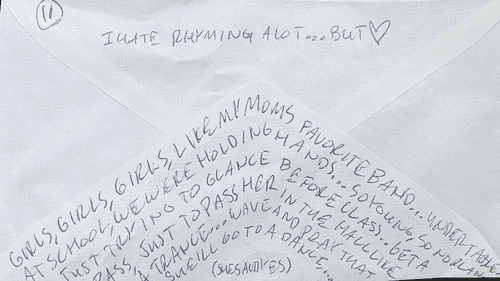 11
I HATE RHYMING ALOT... BUT ♡
GIRLS, GIRLS, GIRLS, LIKE MY MOMS FAVORITE BAND... UNDER TABLES
AT SCHOOL, WE WERE HOLDING HANDS... SO YOUNG, SO NO PLAN
JUST TRYING TO GLANCE BEFORE CLASS... GET A
PASS JUST TO PASS HER IN THE HALL LIKE
A TRANCE... WAVE AND PRAY THAT
SHE'LL GO TO A DANCE...
(SHES A)